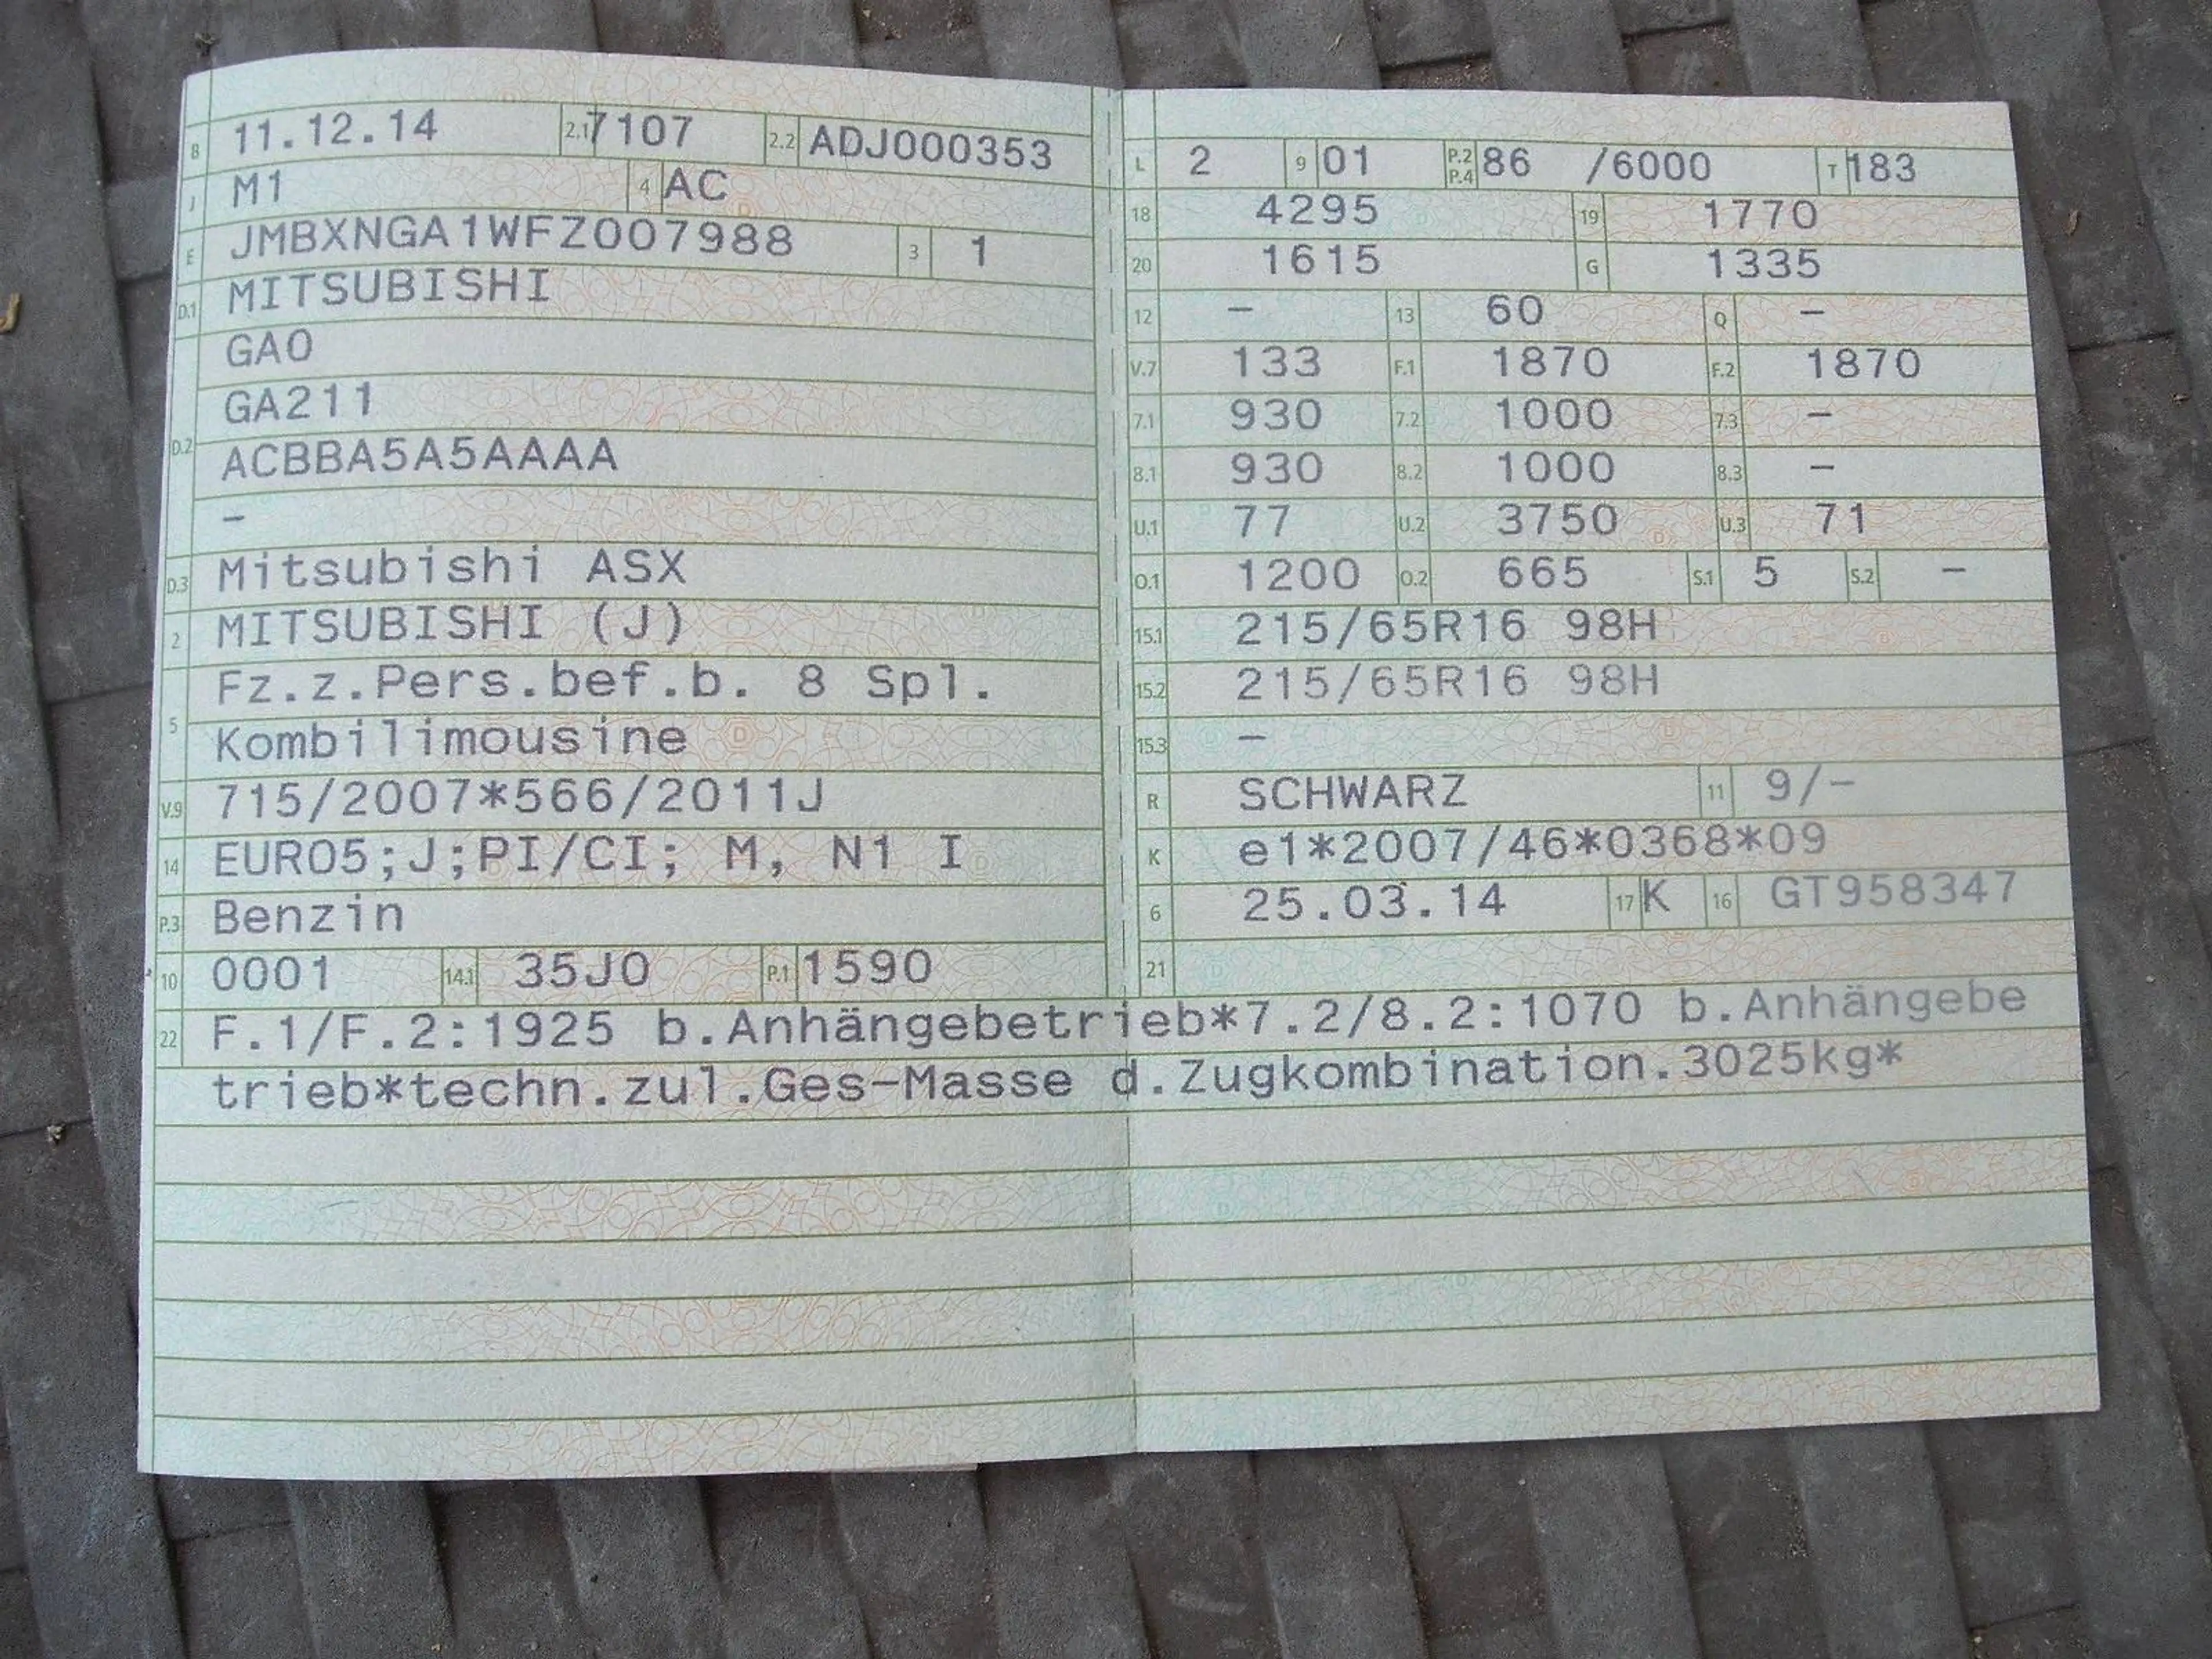 B 11.12.14 2.1 7107 2.2 ADJ000353
J M1 4 AC
E JMBXNGA1WFZ007988 3 1
D.1 MITSUBISHI
GA0
GA211
D.2 ACBBA5A5AAAA
–
D.3 Mitsubishi ASX
2 MITSUBISHI (J)
Fz.z.Pers.bef.b. 8 Spl.
5 Kombilimousine
V.9 715/2007*566/2011J
14 EURO5;J;PI/CI; M, N1 I
P.3 Benzin
10 0001 14.1 35J0 P.1 1590
L 2 9 01 P.2 P.4 86 /6000 T 183
18 4295 19 1770
20 1615 G 1335
12 – 13 60 Q –
V.7 133 F.1 1870 F.2 1870
7.1 930 7.2 1000 7.3 –
8.1 930 8.2 1000 8.3 –
U.1 77 U.2 3750 U.3 71
O.1 1200 O.2 665 S.1 5 S.2 –
15.1 215/65R16 98H
15.2 215/65R16 98H
15.3 –
R SCHWARZ 11 9/–
K e1*2007/46*0368*09
6 25.03.14 17 K 16 GT958347
21
22 F.1/F.2:1925 b.Anhängebetrieb*7.2/8.2:1070 b.Anhängebe
trieb*techn.zul.Ges-Masse d.Zugkombination.3025kg*